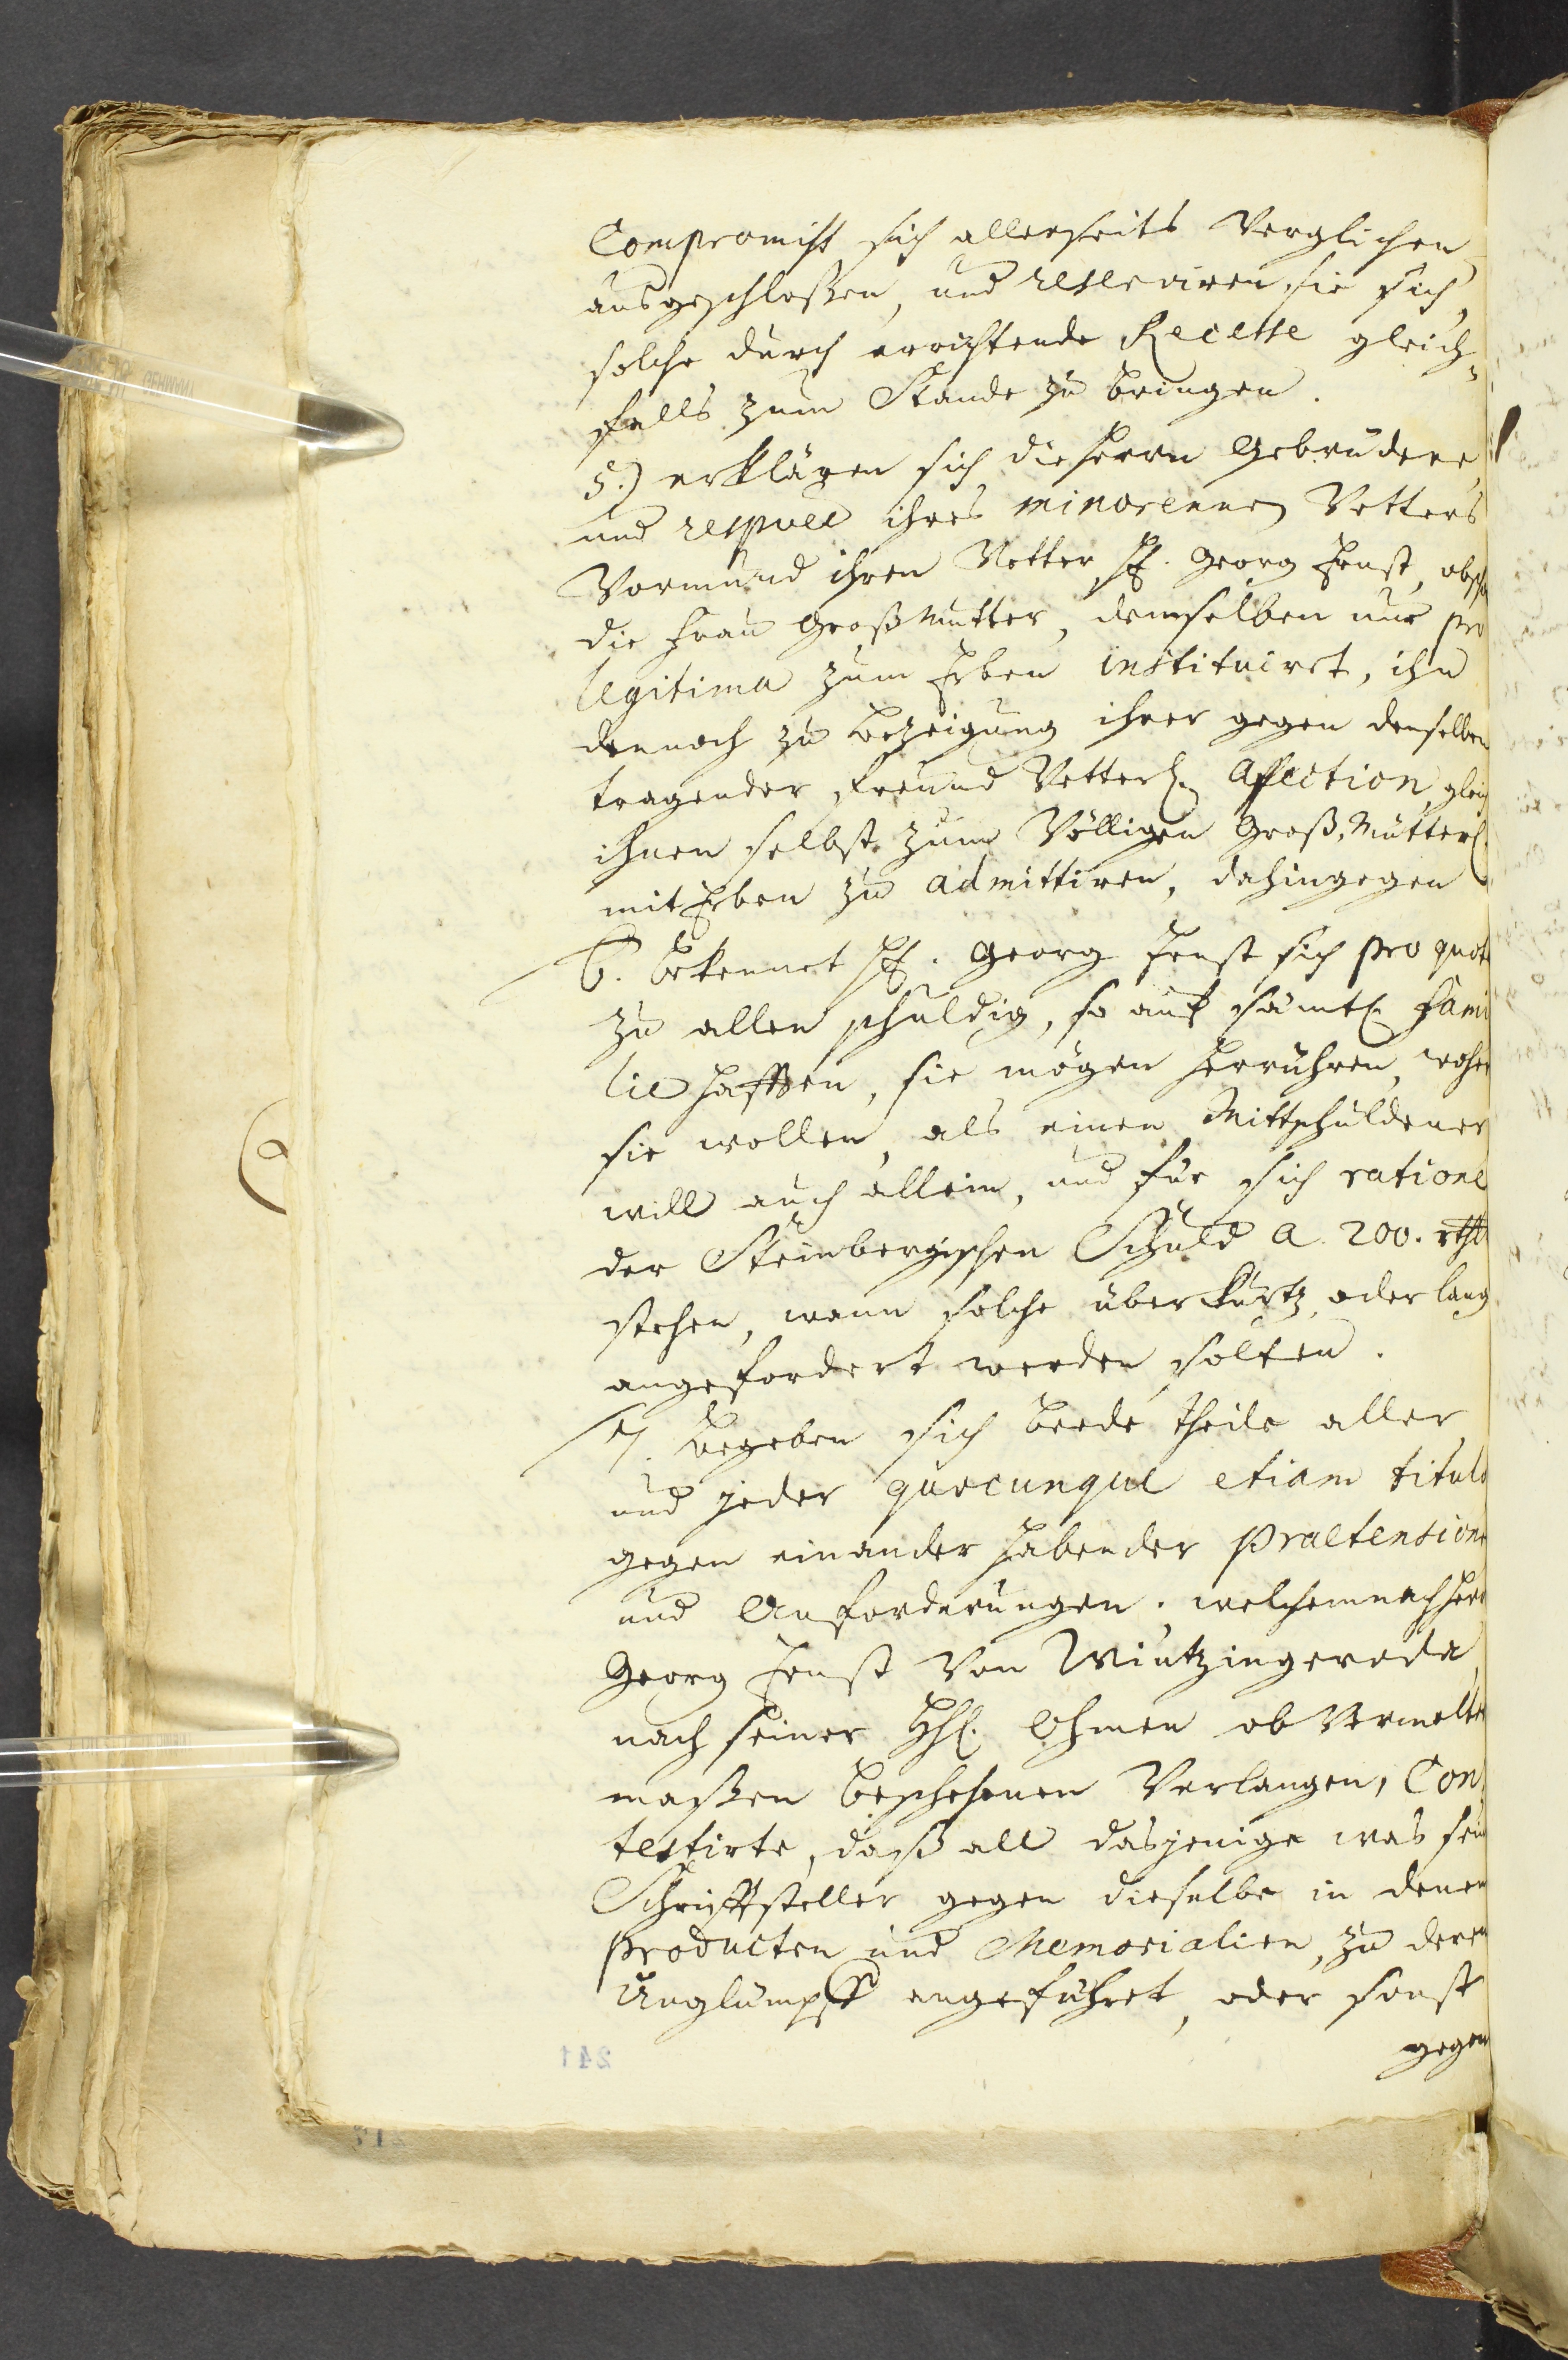 Compromiss sich allerseits verglichen
ausgeschloßen, und reserviren sie sich,
solche durch errichtende Recesse gleich¬
falls zum Stande zu bringen.
5.) erklären sich die Herrn Gebrüdere
und respvee ihres minorennen Vetters
Vormund ihren Vetter H. Georg Ernst, obsch
die Frau Großmutter, demselben nur pro
legitima zum Erben instituiret, ihn
dennoch zu bezeigung ihrer gegen denselben
tragender Freund Vetterl. Affection, gleich
ihnen selbst zum völligen Groß Mütterl.
mit Erben zu admittiren, dahingegen
6. bekennet H. Georg Ernst sich pro quota
zu allen schuldig, so auf sämtl. Fami
lie hafften, sie mögen herrühren, woher
sie wollen, als einen Mittschuldener
will auch allein, und für sich ratione
der Steinbergischen Schuld a 200. rthl
stehen, wann solche über kurtz oder lang
angefordert werden solten.
7. begeben sich beede theile aller
und jeder quocunque etiam titulo
gegen einander habender Praetensione
und Anforderungen. welchemnach Herr
Georg Ernst von Wintzingeroda,
nach seiner HH. Ohmen ob vermelter
maßen beschehenen Verlangen, Con¬
testirte, daß all dasjenige was sein
Schriffsteller gegen dieselbe in denen
Producten und Memorialien, zu deren
Unglümpff angeführet, oder sonst
gegen
241